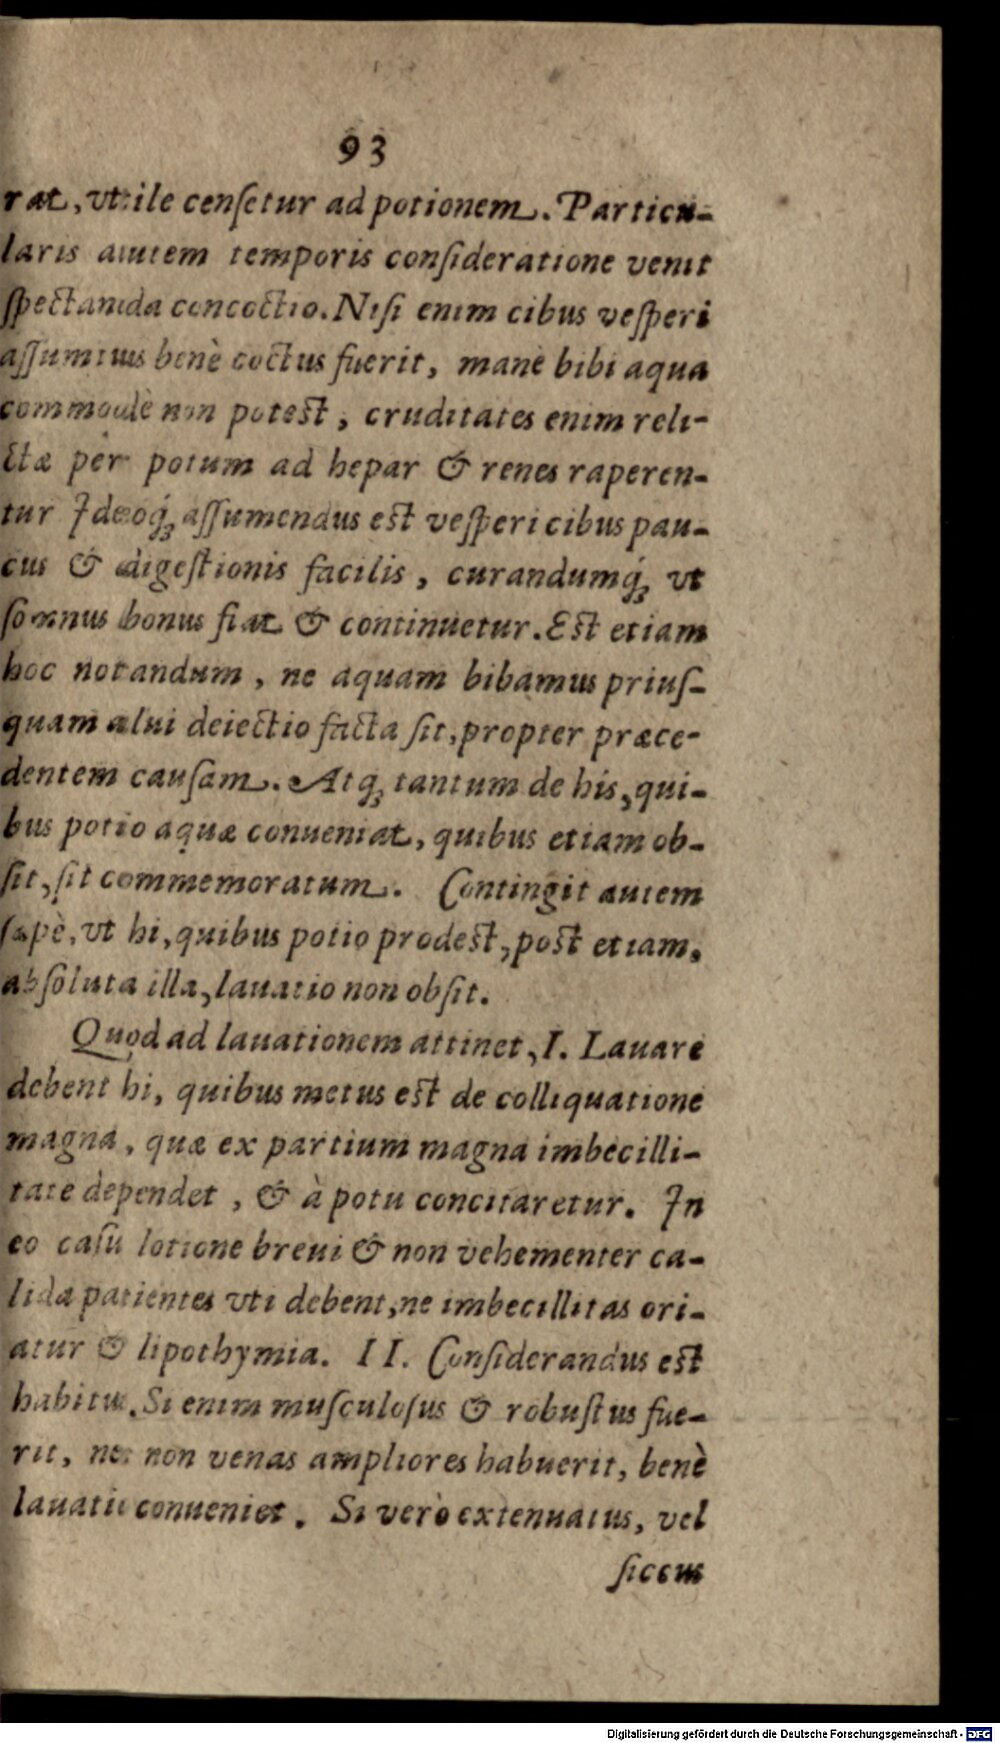 93
rat, vtile censetur ad potionem. Particu-
laris autem temporis consideratione venit
spectanda concoctio. Nisi enim cibus vesperi
assumtus benè coctus fuerit, manè bibi aqua
commodè non potest, cruditates enim reli-
ctæ per potum ad hepar & renes raperen-
tur Ideoq́; assumendus est vesperi cibus pau-
cus & digestionis facilis, curandumq́; vt
somnus bonus fiat & continuetur. Est etiam
hoc notandum, ne aquam bibamus prius-
quam alui deiectio facta sit, propter præce-
dentem causam. Atq; tantum de his, qui-
bus potio aquæ conueniat, quibus etiam ob-
sit, sit commemoratum. Contingit autem
sæpè, vt hi, quibus potio prodest, post etiam,
absoluta illa, lauatio non obsit.
Quod ad lauationem attinet, I. Lauare
debent hi, quibus metus est de colliquatione
magna, quæ ex partium magna imbecilli-
tate dependet, & à potu concitaretur. In
eo casu lotione breui & non vehementer ca-
lida patientes vti debent, ne imbecillitas ori-
atur & lipothymia. II. Considerandus est
habitus. Si enim musculosus & robustus fue-
rit, nec non venas ampliores habuerit, benè
lauatio conueniet. Si verò extenuatus, vel
siccus
Digitalisierung gefördert durch die Deutsche Forschungsgemeinschaft - DFG